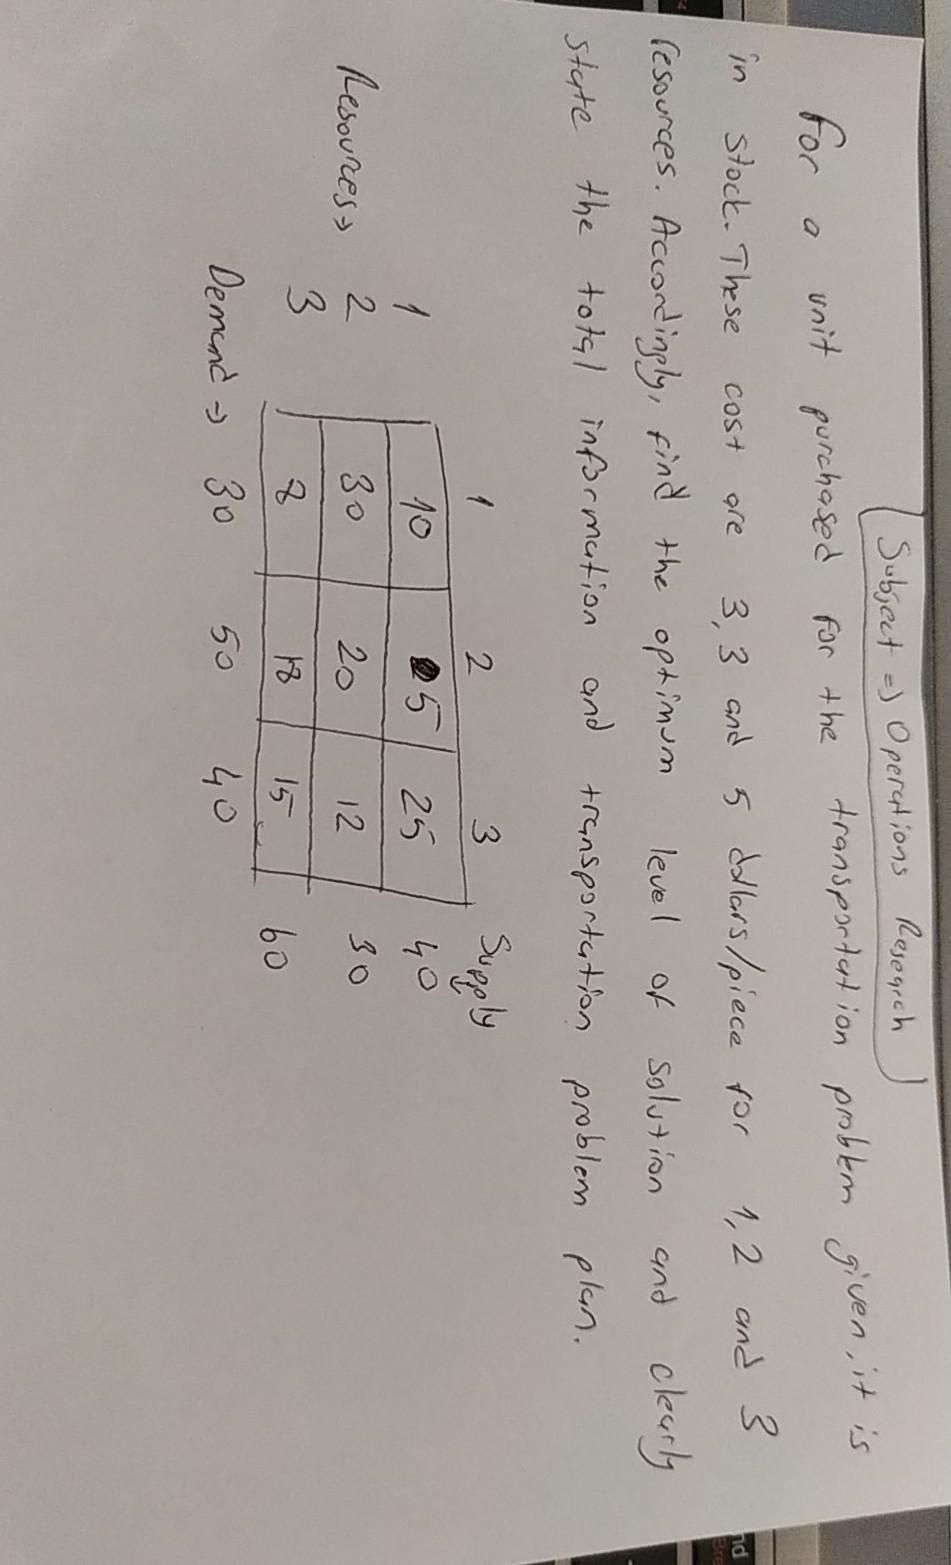 Subject => Operations Research
For a unit purchased for the transportation problem given, it is
in stock. These cost are 3, 3 and 5 dollars/piece for 1, 2 and 3
resources. Accordingly, find the optimum level of solution and clearly
state the total information and transportation problem plan.
1 2 3 Supply
1 10 5 25 40
Resources → 2 30 20 12 30
3 8 18 15 60
Demand → 30 50 40